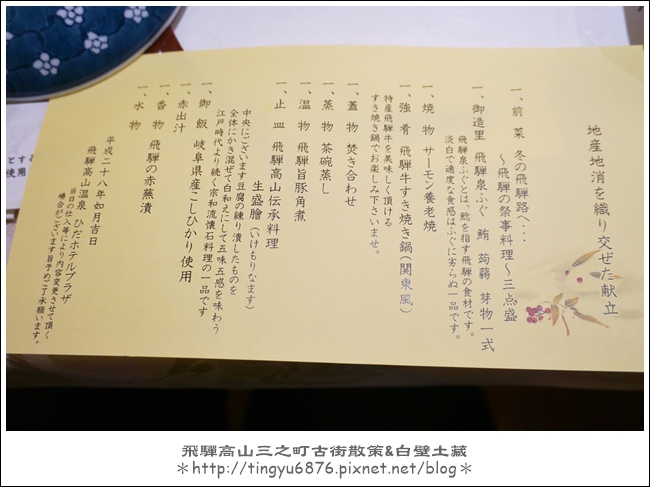 地産地消を織り交ぜた献立
一、前菜 冬の飛騨路へ・・・
～飛騨の祭事料理～三点盛
一、御造里 飛騨泉ふぐ 鮪 蒟蒻 芽物一式
飛騨泉ふぐとは、鯰を指す飛騨の食材です。
淡白で適度な食感はふぐに劣らぬ一品です。
一、焼物 サーモン養老焼
一、強肴 飛騨牛すき焼き鍋(関東風)
特産飛騨牛を美味しく頂ける
すき焼き鍋でお楽しみ下さいませ。
一、蓋物 焚き合わせ
一、蒸物 茶碗蒸し
一、温物 飛騨旨豚角煮
一、止皿 飛騨高山伝承料理
生盛膾(いけもりなます)
中央にございます豆腐の練り潰したものを
全体にかき混ぜて白和えにして五味五感を味わう
江戸時代より続く宗和流懐石料理の一品です
一、御飯 岐阜県産こしひかり使用
一、赤出汁
一、香物 飛騨の赤蕪漬
一、水物
平成二十八年如月吉日
飛騨高山温泉 ひだホテルプラザ
当日の仕入等により内容変更させて頂く
場合がございます旨予めご了承願います。
とする
使用
飛驒高山三之町古街散策&白壁土藏
＊http://tingyu6876.pixnet.net/blog＊